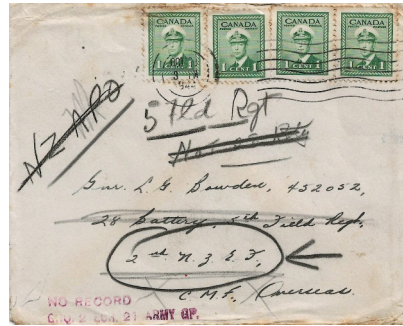 CANADA CANADA CANADA CANADA
1 CENT 1 1 CENT 1 1 CENT 1 1 CENT 1
NZ APO
5 Fld Rgt
Gnr. L. G. Bowden, 452052,
28 Battery, 5th Field Regt.
2nd N.Z.E.F.
C.M.F. Overseas.
NO RECORD
2 21 ARMY GP.